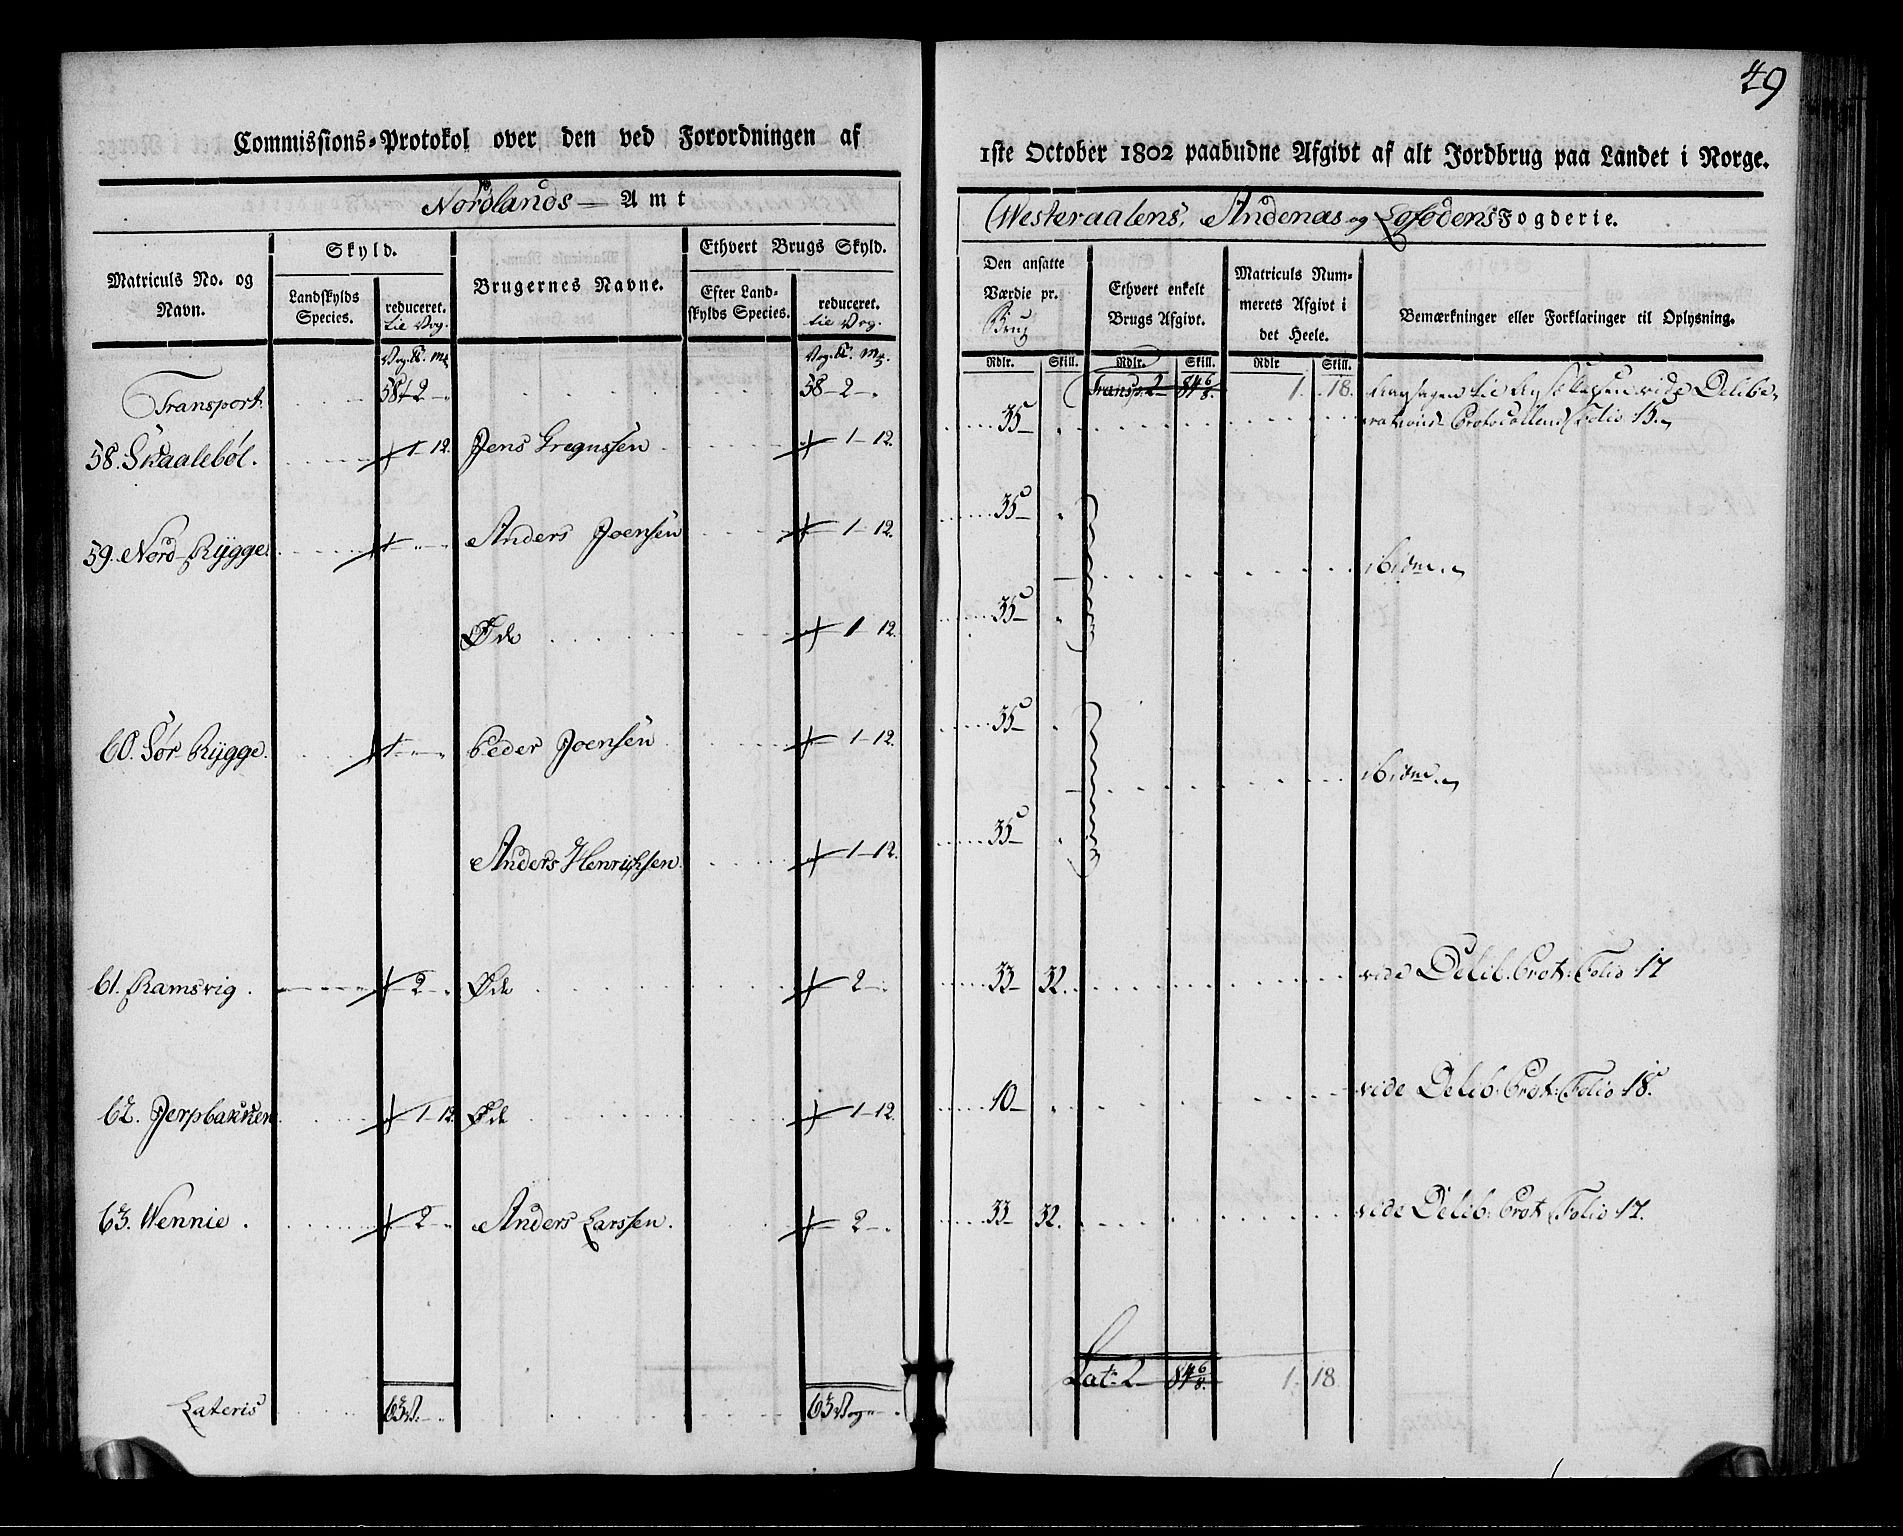 49
Commissions-Protokol over den ved Forordningen af
1ste October 1802 paabudne Afgivt af alt Jordbrug paa Landet i Norge.
Nordlands Amt
Westeraalens, Andenæs og Lofodens Fogderie.
Matriculs No. og Navn.
Skyld.
Landskylds Species.
reduceret. tie Vog.
Brugernes Navne.
Ethvert Brugs Skyld.
Efter Landskylds Species.
reduceret. tie Vog.
Den ansatte Værdie pr. Brug
Ethvert enkelt Brugs Afgivt.
Matriculs Nummerets Afgivt i det Heele.
Bemærkninger eller Forklaringer til Oplysning.
Rdlr. Skill. Rdlr. Skill. Rdlr Skill.
Transport 58 - 2 - 58 - 2 - Transp. 2 1. 18. vide Delibe-
rations Protocollens Folio 15.
58. Skaalebøl. 1 - 12. Jens Gregussen 1 - 12. 35 -
59. Nord-Rÿgge Anders Joensen 1 - 12. 35 - ibidm.
Øde 1 - 12. 35 -
60. Sør-Rÿgge. Peder Joensen 1 - 12. 35 - ibidm.
Anders Henrichsen 1 - 12. 35 -
61. Ramsvig 2 - Øde 2 - 33 - 32. vide Delib. Prot: Folio 17
62. Jerpbakken 1 - 12. Øde 1 - 12. 10 - vide Delib: Prot: Folio 18.
63. Wennie. 2 - Anders Larssen. 2 - 33 - 32. vide Delib: Prot: Folio 17.
Lateris 63 V. 63 Vog Lat: 2 1. 18.